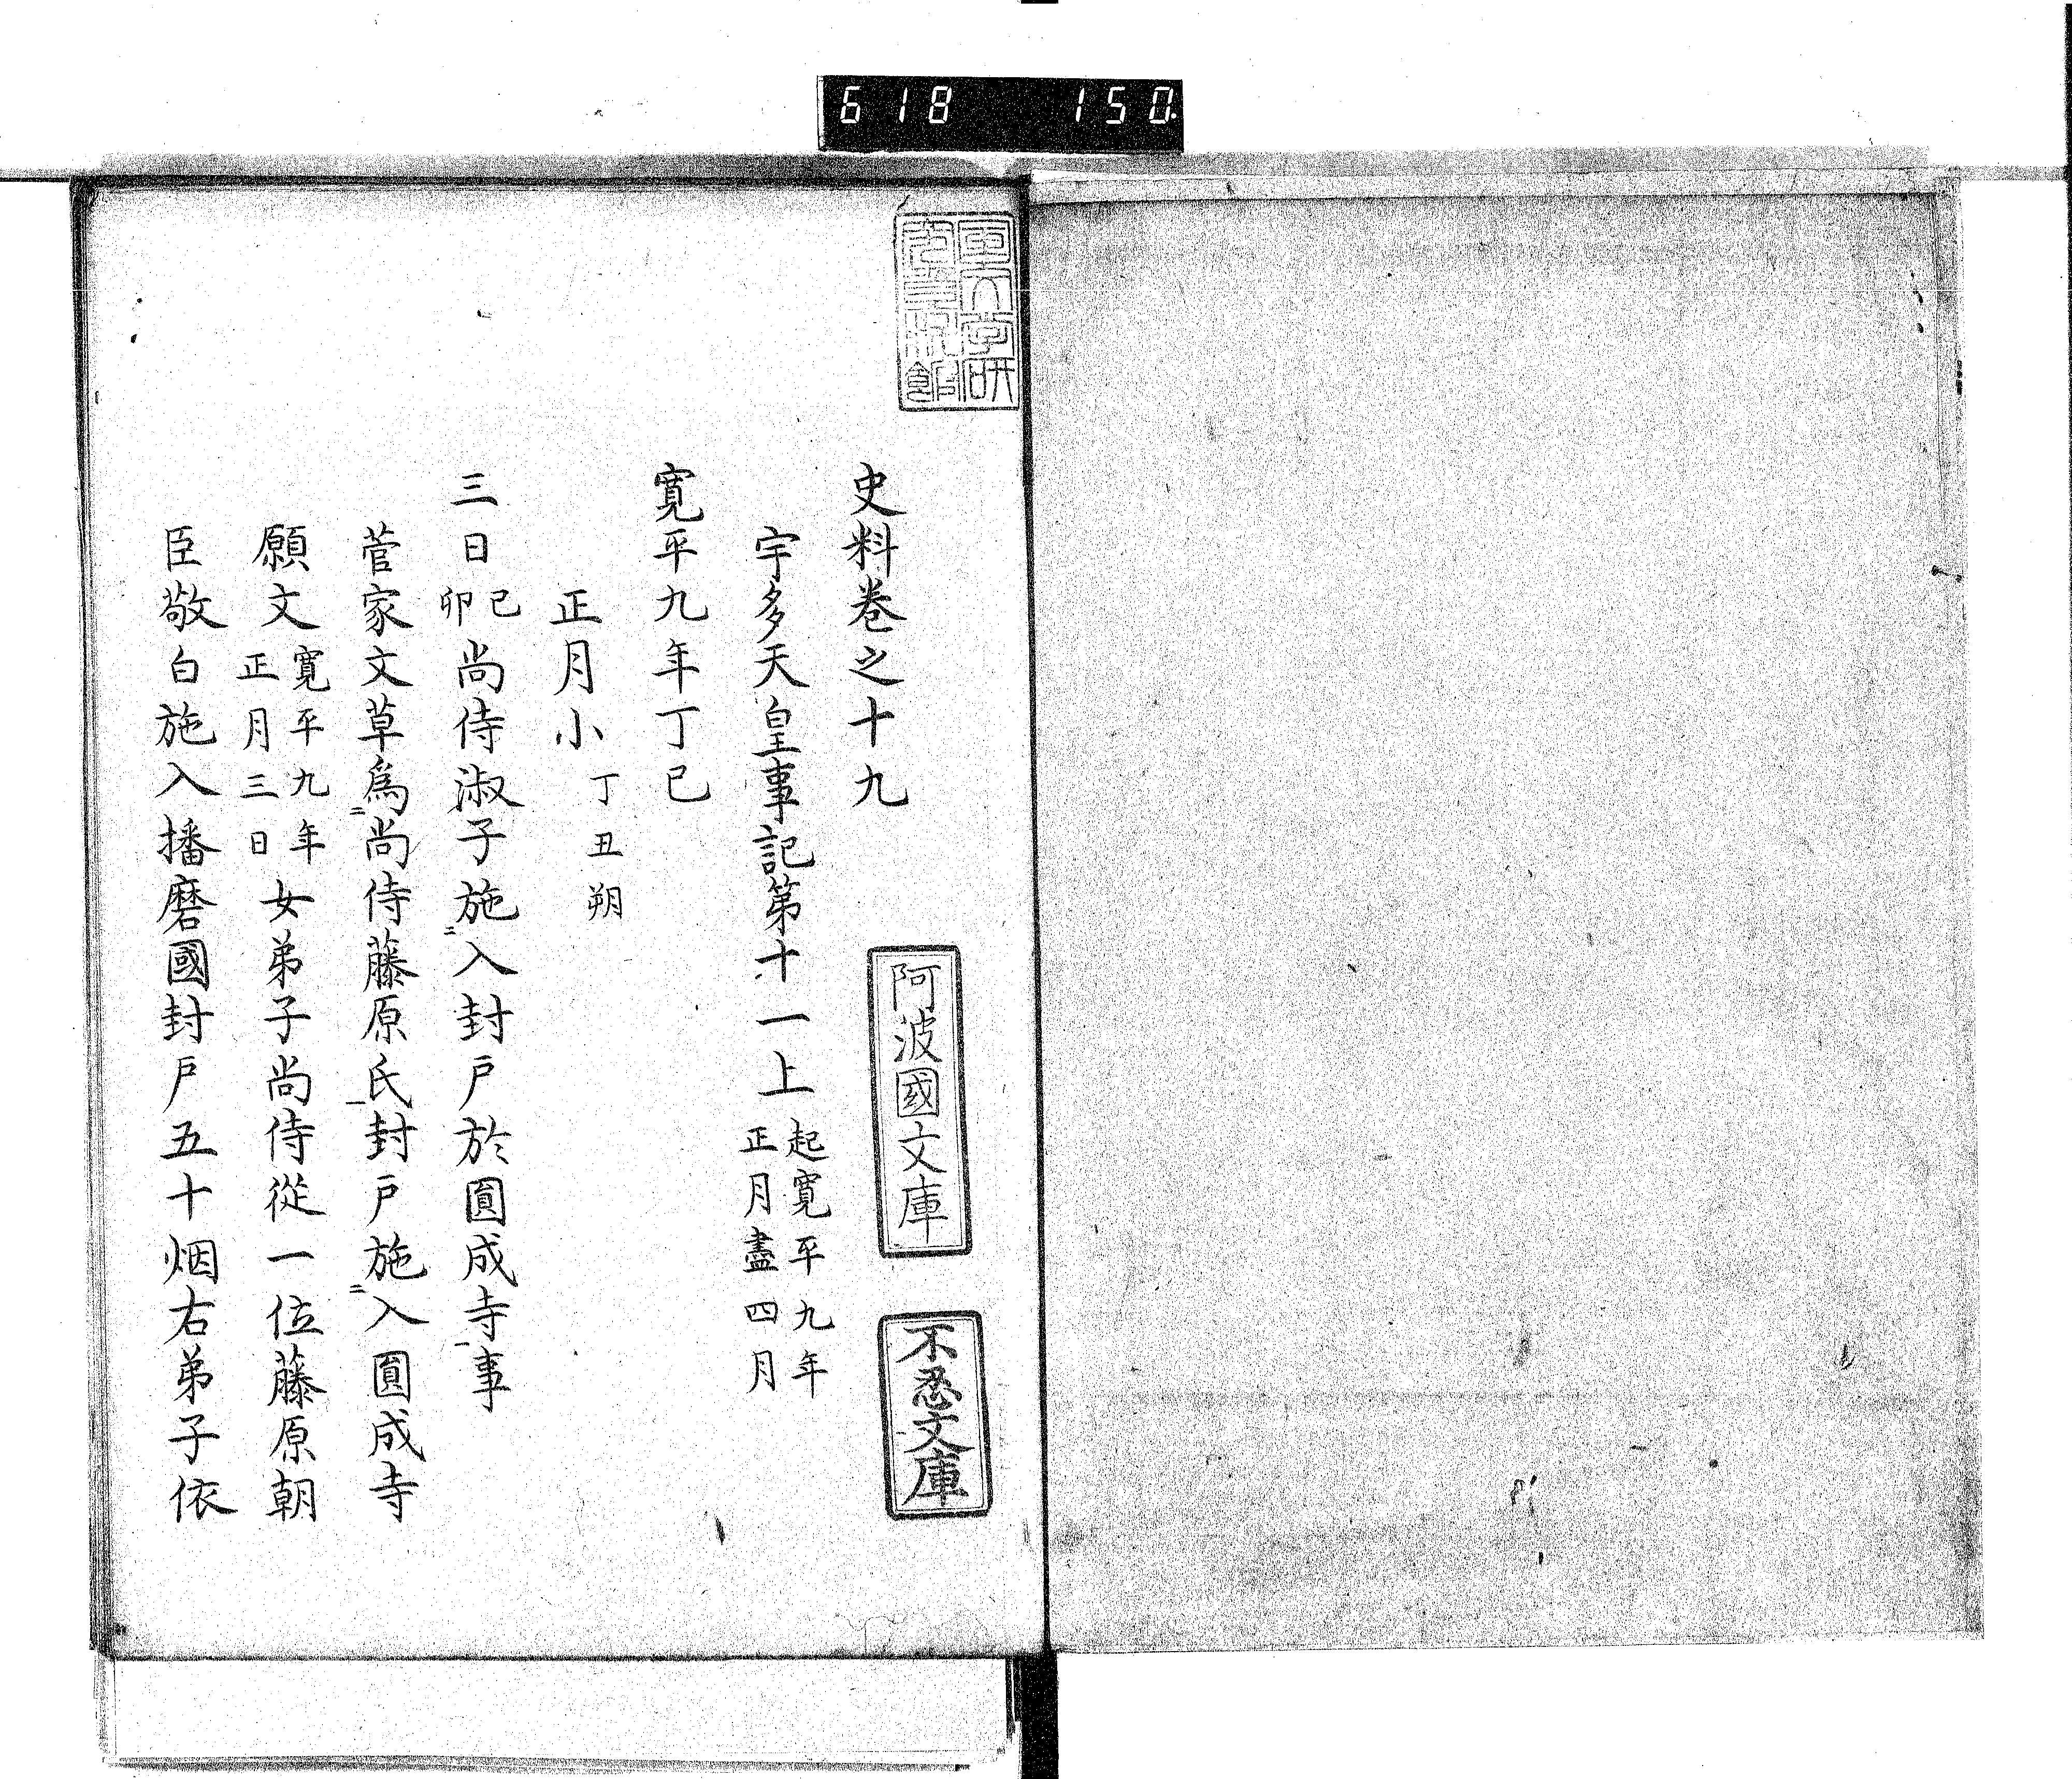 618 150
史料巻之十九
宇多天皇事記第十一上 起寛平九年 正月盡四月
寛平九年丁巳
正月小 丁丑朔
三日 己卯 尚侍淑子施二入封戸於圓成寺一事
菅家文草爲二尚侍藤原氏一封戸施二入圓成寺
願文 寛平九年 正月三日 女弟子尚侍從一位藤原朝
臣敬白施入播磨國封戸五十烟右弟子依
阿波國文庫
不忍文庫